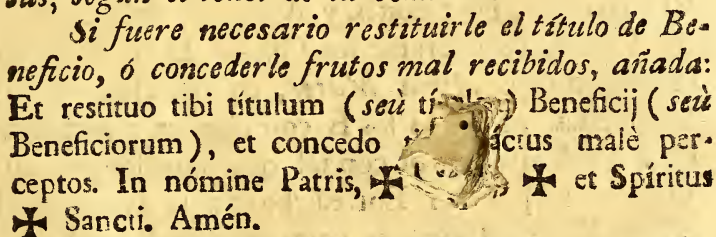 Si fuere necesario restituirle el título de Be-
neficio, ó concederle frutos mal recibidos, añada:
Et restituo tibi títulum (seù) Beneficij (seù
Beneficiorum), et concedo malè per-
ceptos. In nómine Patris, ✠ ✠ et Spíritus
✠ Sancti. Amén.